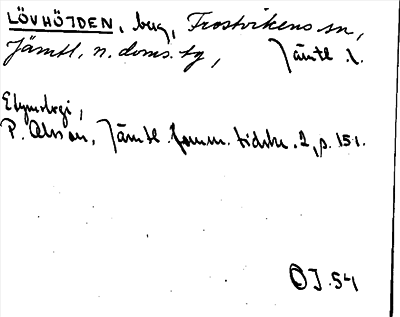 LÖVHÖJDEN, berg, Frostvikens sn,
Jämtl. n. doms. tg, Jämtl. l.
Etymologi,
P. Olsson, Jämtl. fornm. tidskr. 2, s. 151.
OJ.54